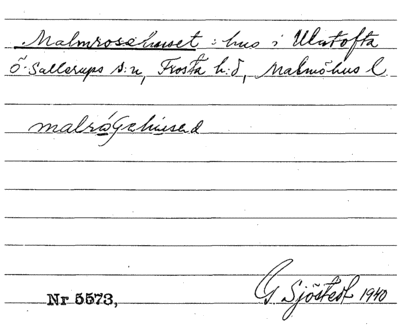 Malmrosehuset : hus i Ulatofta
Ö. Sallerups s:n, Frosta h:d, Malmöhus l.
G. Sjöstedt 1940
Nr 5573,